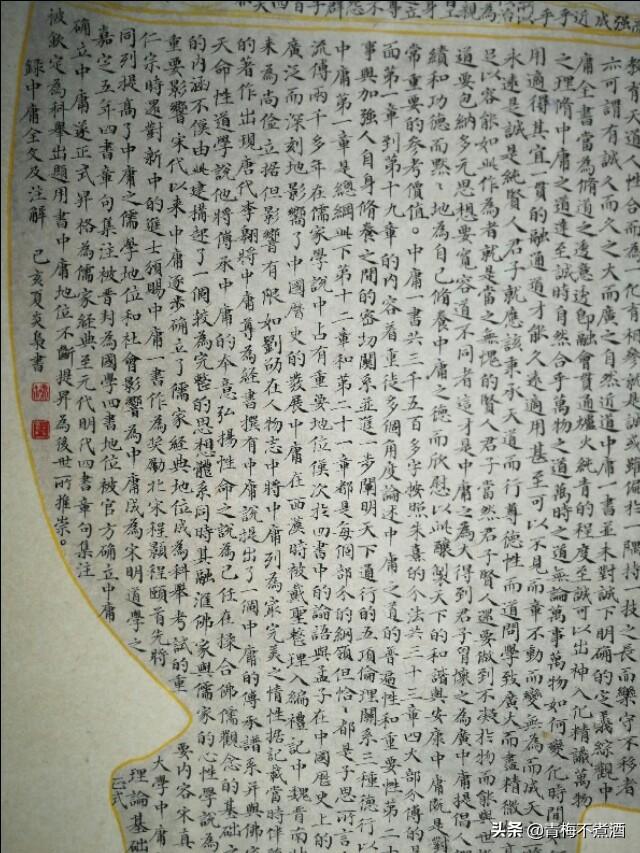 教有天道人性合而為一化有相參就是誠或雖備於一隅持一技之長而樂守不移者
亦可謂有誠久而久之大而廣之自然道道中庸一書並未對誠下明确的定義綜觀中
庸全書當為脩道之透悳透即融會貫通爐火純青的程度至誠可以出神入化精識萬物
之理脩中庸之道達至誠時自然合乎萬物之道萬時之道無論萬事萬物如何變化時間
用適得其宜一貫的融通道才能久遠適用甚至可以不見而章不動而變無為而成天
永遠是誠是純賢人君子就應該秉承天道而行尊德性而道問學致廣大而盡精微
足以容能如此作為者就是當之無愧的賢人君子當然君子賢人還要做到不凝於物而能與世
道要包納多元思想要寬容道不同者這才是中庸之為大得到君子習慷之為廣中庸提倡人
績和功德而默默地為自己脩養中庸之德而欣慰以此釀製天下的和諧與安康中庸既是
常重要的參考價值。中庸一書共三千五百多字按照朱熹的分法共三十三章四大部分傳的是
面第一章到第十九章的內容着重徒多個角度論述中庸之道的普遍性和重要性第二十
事與加強人自身脩養之間的密切關系並進一步闡明天下通行的五項倫理關系三種德行以
中庸第一章是總綱此下第十二章和第二十一章都是每個部分的綱領但恰恰都是子思所言
流傳兩千多年在儒家學說中占有重要地位僅次於四書中的論語與孟子在中國歷史上的
廣泛而深刻地影響了中國歷史的發展中庸在西漢時被戴聖整理入編禮記中魏晉南
未為尚儉立据但影響有限如劉劭在人物志中將中庸列為最完美之情性据記載當時伴隨
的著作出現唐代李翱將中庸尊為經書撰有中庸說提出了一個中庸的傳承譜系并與佛
天命性道學說他將傳承中庸的本意弘揚性命之說為己任在揉合佛儒觀念的基础
的內涵不僅由此建構起了一個較為完整的思想體系同時其融滙佛家與儒家的心性學說為
重要影響宋代以來中庸逐步確立了儒家經典地位成為科舉考試的重要內容宋真
仁宗時還對新中的進士頒賜中庸一書作為獎勵北宋程顥程頤首先將大學中庸
同列提高了中庸之儒學地位和社會影響為中庸成為宋明道學之理論基础
嘉定五年四書章句集注被晉封為國學四書地位被官方確立中庸正式
確立中庸遂正式昇格為儒家經典至元代明代四書章句集注
被欽定為科舉出題用書中庸地位不斷提昇為後世所推崇。
錄中庸全文及注解 己亥夏炎梟書
头条 @青梅不煮酒